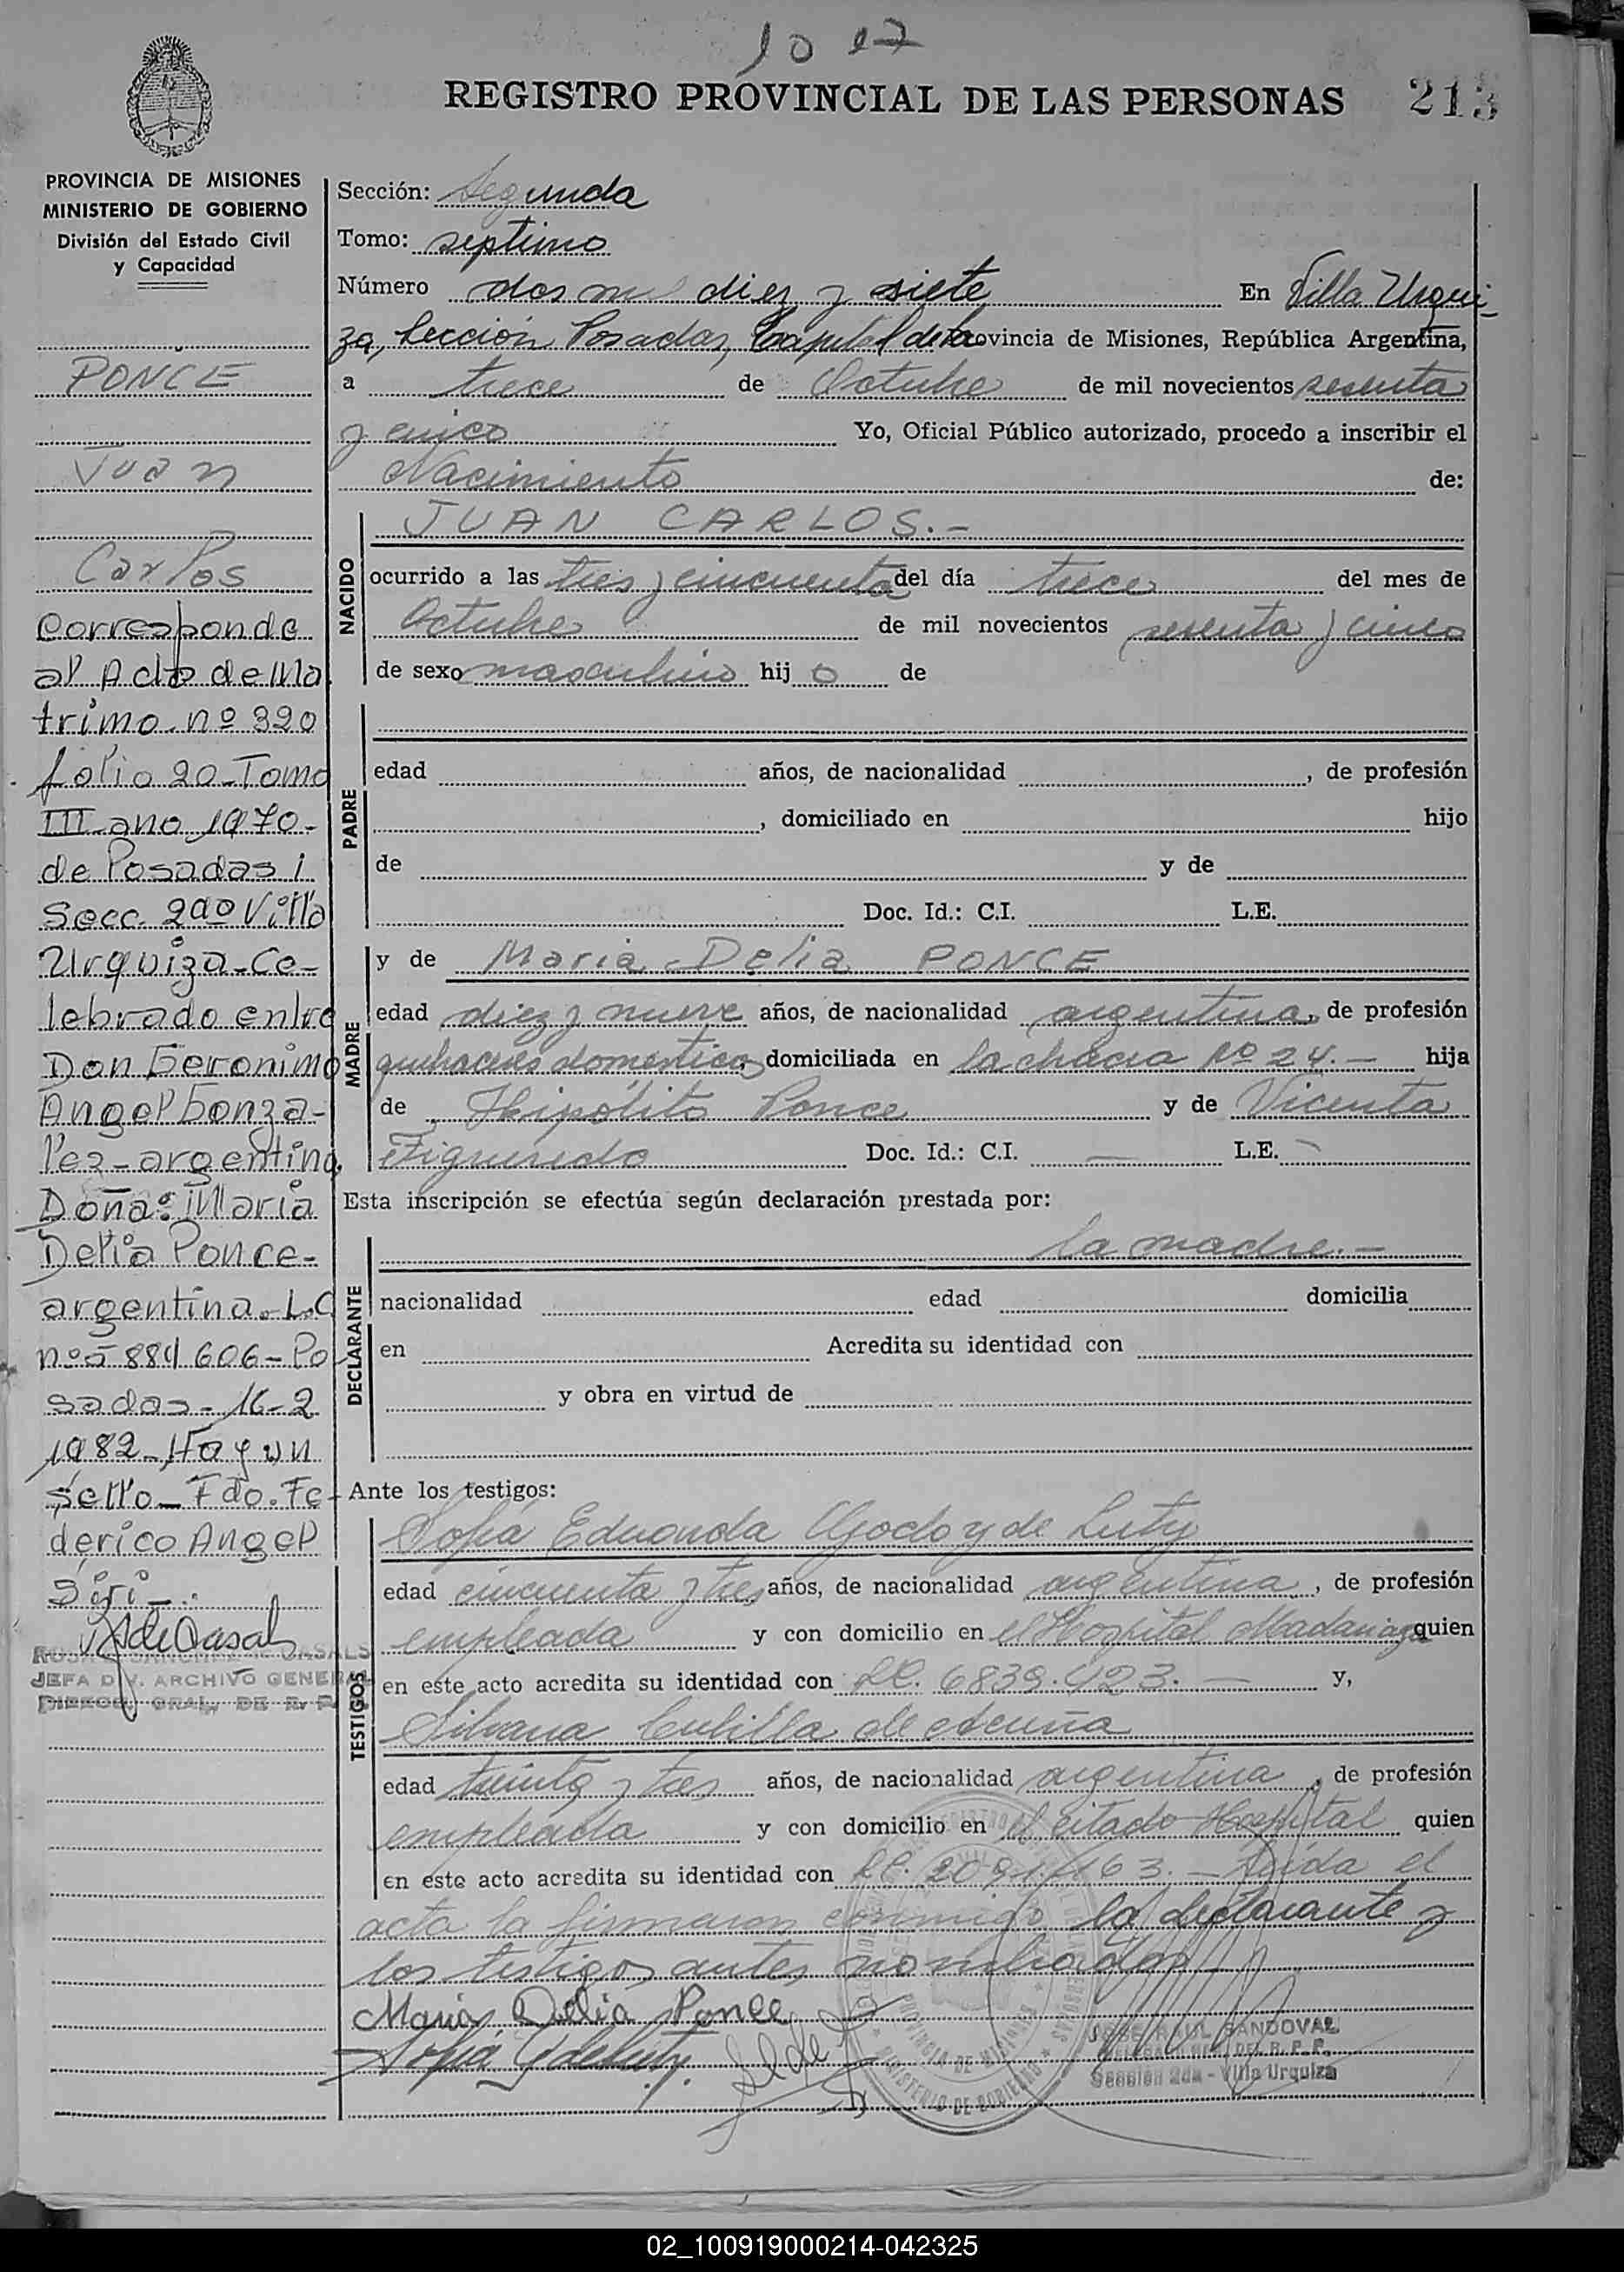 213
REGISTRO PROVINCIAL DE LAS PERSONAS
PROVINCIA DE MISIONES
MINISTERIO DE GOBIERNO
División del Estado Civil
y Capacidad
PONCE
Juan
Carlos
Corresponde
al Acta de Ma
trimo. nº 320
folio 20 - Tomo
III - año 1970 -
de Posadas i
Secc. 2da Villa
Urquiza - Ce-
lebrado entre
Don Geronimo
Angel Gonza-
lez - argentino,
Doña: Maria
Delia Ponce -
argentina. L.C
nº 5 884 606 - Po
sadas - 16 - 2
1982 - Hay un
sello - Fdo. Fe
derico Angel
Siri -.
JEFA DIV. ARCHIVO GENERAL
DIRECC. GRAL. DE R. P.
Sección: Segunda
Tomo: septimo
Número dos mil diez y siete En Villa Urqui-
za, Sección Posadas, Capital de la Provincia de Misiones, República Argentina,
a trece de Octubre de mil novecientos sesenta
y cinco Yo, Oficial Público autorizado, procedo a inscribir el
Nacimiento de:
NACIDO
JUAN CARLOS.-
ocurrido a las tres y cincuenta del día trece del mes de
Octubre de mil novecientos sesenta y cinco
de sexo masculino hijo de
PADRE
edad años, de nacionalidad , de profesión
, domiciliado en hijo
de y de
Doc. Id.: C.I. L.E.
MADRE
y de Maria Delia PONCE
edad diez y nueve años, de nacionalidad argentina, de profesión
quehaceres domesticos domiciliada en la chacra Nº 24.- hija
de Hipólito Ponce y de Vicenta
Figueredo Doc. Id.: C.I. — L.E. —
Esta inscripción se efectúa según declaración prestada por:
la madre.-
DECLARANTE
nacionalidad edad domicilia
en Acredita su identidad con
y obra en virtud de
Ante los testigos:
TESTIGOS
Sofia Eduarda Godoy de Luty
edad cincuenta y tres años, de nacionalidad argentina, de profesión
empleada y con domicilio en el Hospital Madariaga quien
en este acto acredita su identidad con LC. 6839.423. — y,
Silvana Cubilla de Acuña
edad treinta y tres años, de nacionalidad argentina, de profesión
empleada y con domicilio en el citado Hospital quien
en este acto acredita su identidad con LC. 2091163. — Leida el
acta la firmaron conmigo la declarante y
los testigos antes nombrados
Maria Delia Ponce
JOSE RAUL SANDOVAL
DEL R. P. P.
Sección 2da - Villa Urquiza
PROVINCIA DE MISIONES
MINISTERIO DE GOBIERNO
02_100919000214-042325